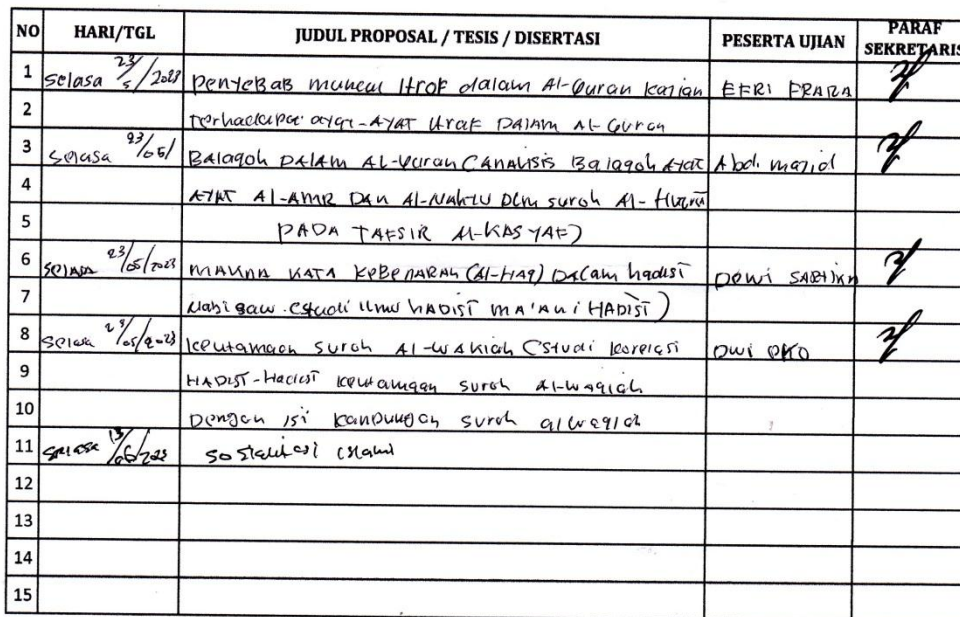 NO HARI/TGL JUDUL PROPOSAL / TESIS / DISERTASI PESERTA UJIAN PARAF SEKRETARIS
1 Selasa 23/5/2023 Penyebab muncul dalam Al-Quran kajian EFRI
2 terhadap ayat-AYAT DALAM AL-Quran
3 Selasa 23/05/ Balaqoh DALAM AL-Quran (ANALISIS Balaqoh AYAT Abd. majid
4 AYAT Al-AMR DAN Al-NAHYU DLM suroh Al-
5 PADA TAFSIR Al-KASYAF)
6 Selasa 23/05/2023 MAKNA KATA KEBENARAN (Al-HAQ) DALAM hadist DEWI SARTIKA
7 Nabi saw. (studi Ilmu HADIST MA'ANI HADIST)
8 Selasa 23/05/2023 keutamaan suroh Al-WAKIAH (Studi korelasi DWI EKO
9 HADIST-Hadist keutamaan suroh Al-Waqiah
10 Dengan isi kandungan suroh alwaqiah
11 Selasa 13/06/2023
12
13
14
15